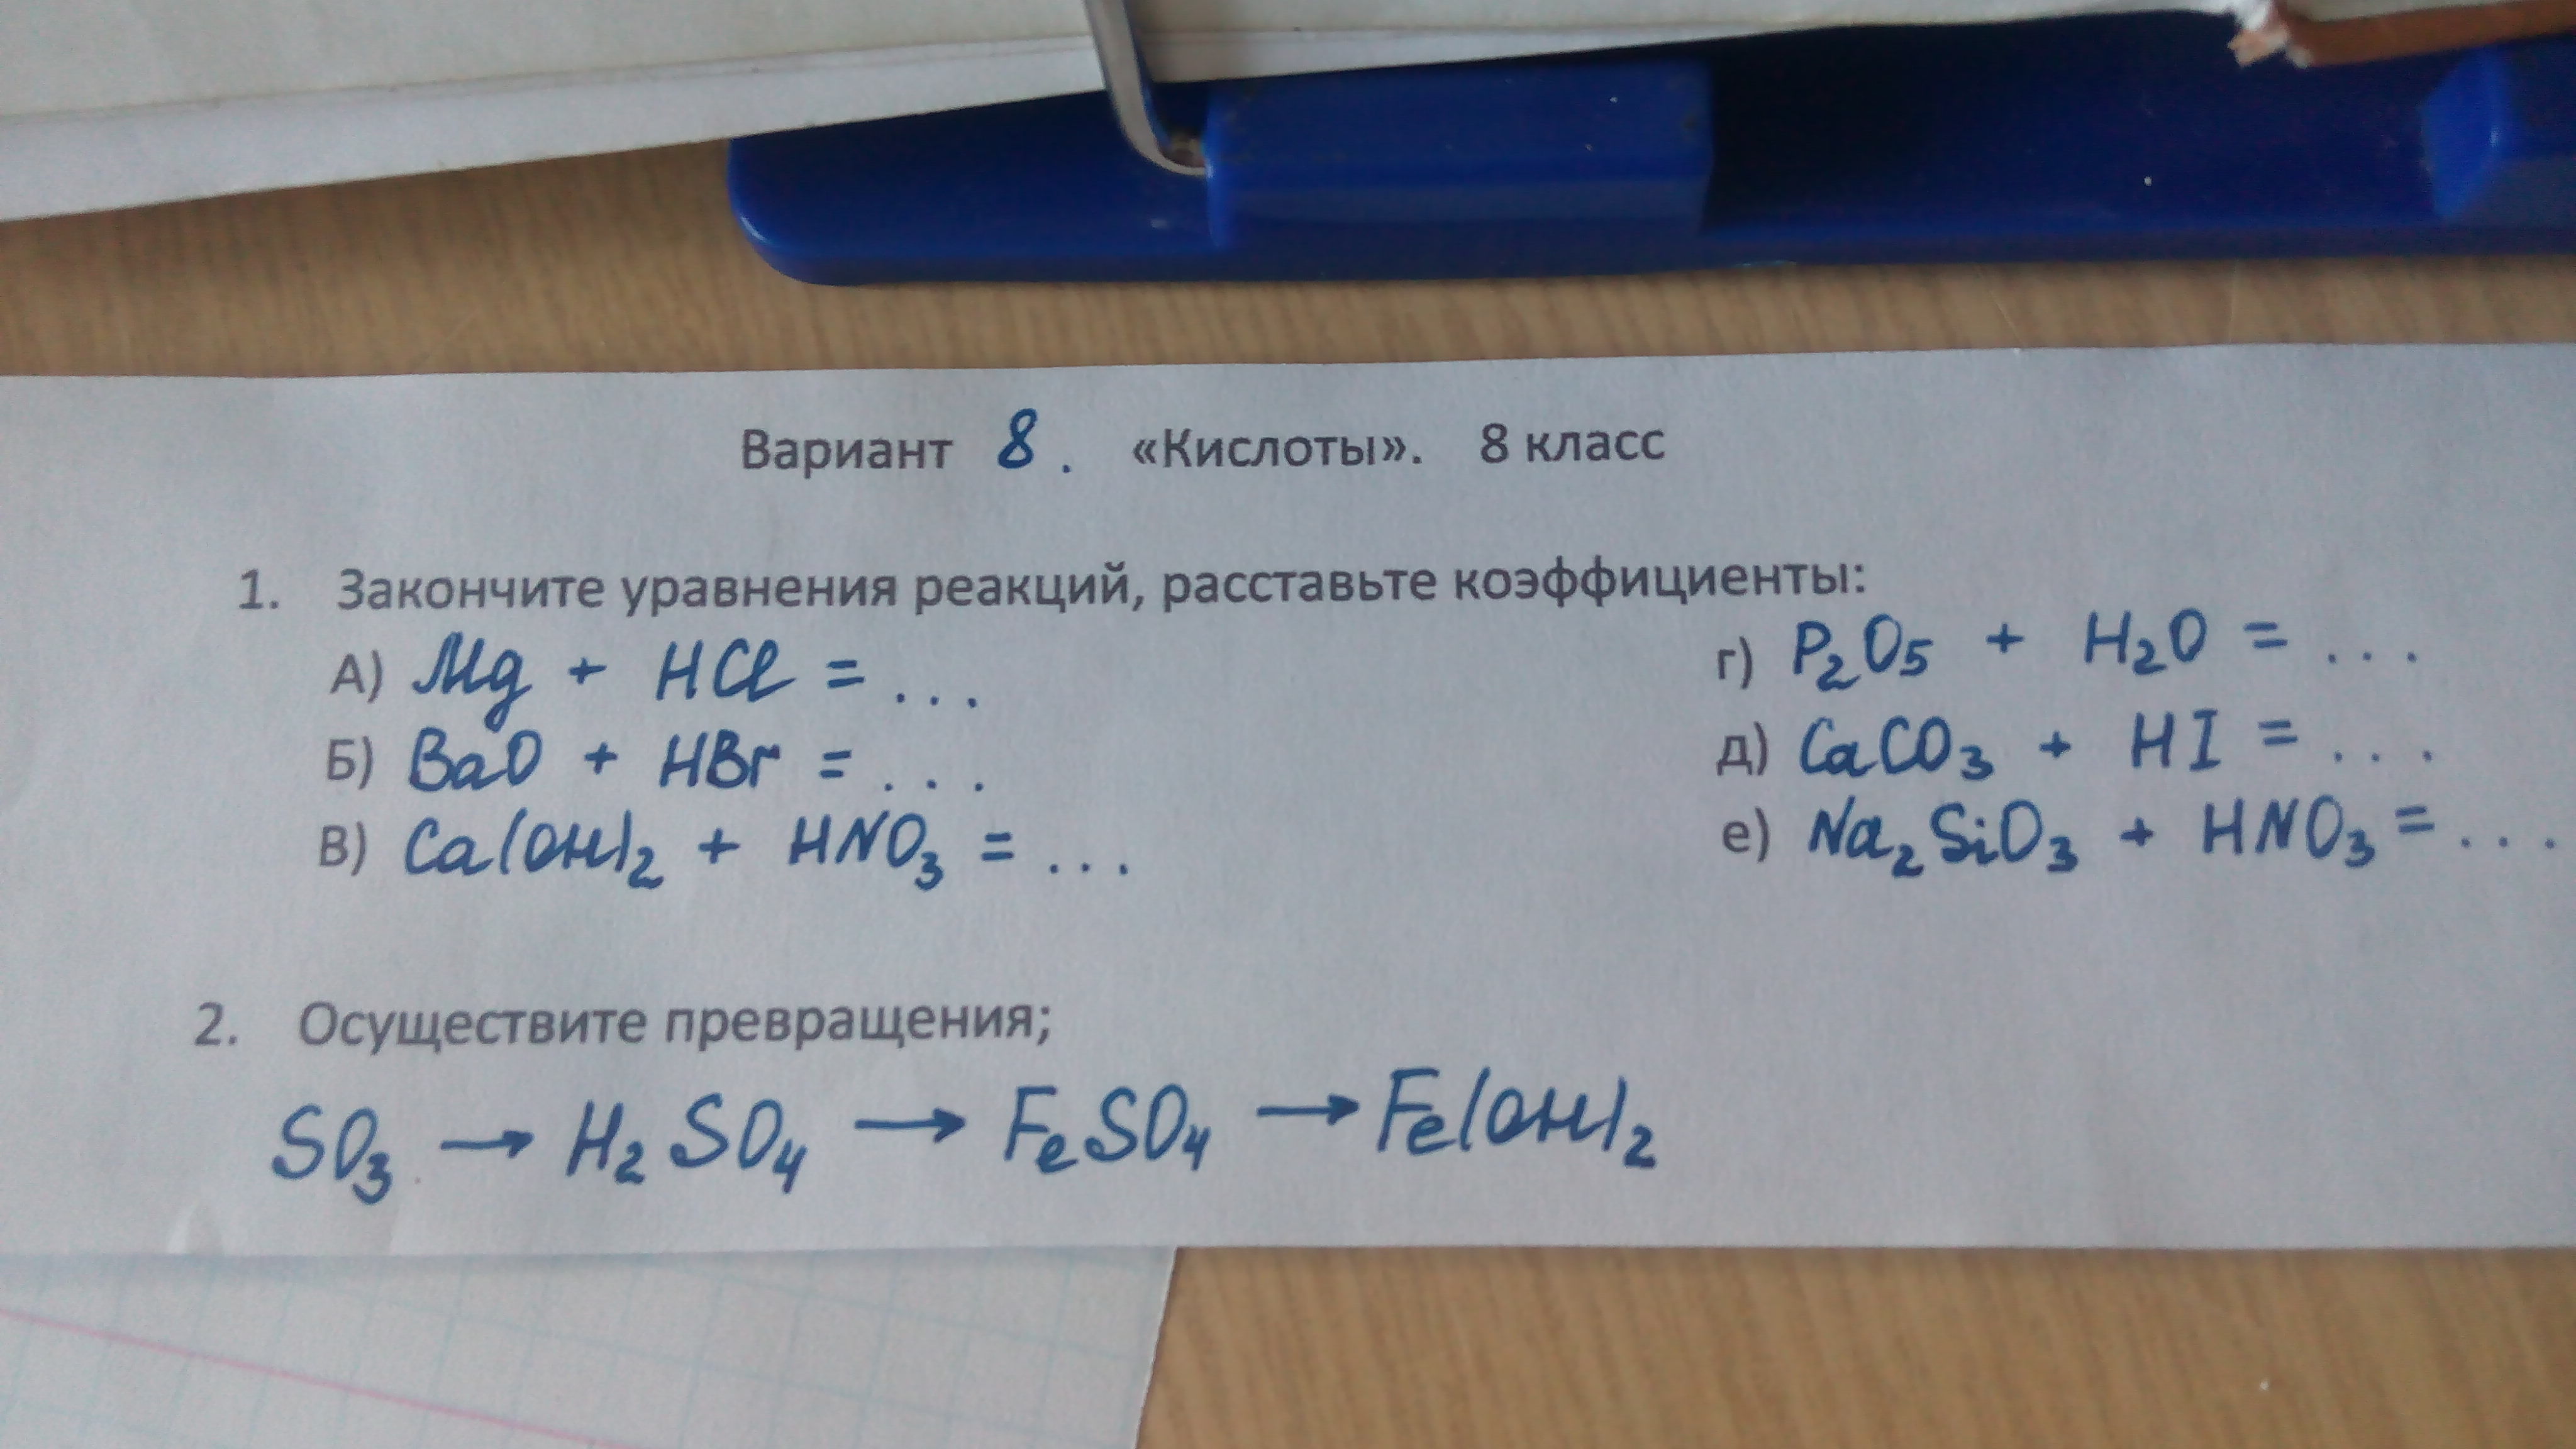 Вариант 8. «Кислоты». 8 класс
1. Закончите уравнения реакций, расставьте коэффициенты:
А) Mg + HCl = ...
Б) BaO + HBr = ...
В) Ca(OH)2 + HNO3 = ...
г) P2O5 + H2O = ...
д) CaCO3 + HI = ...
е) Na2SiO3 + HNO3 = ...
2. Осуществите превращения;
SO3 → H2SO4 → FeSO4 → Fe(OH)2